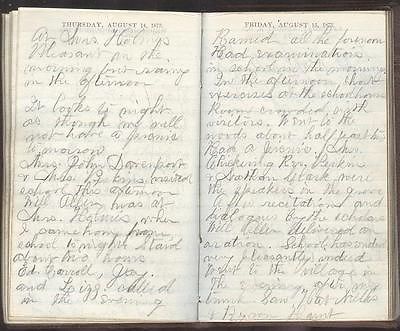 THURSDAY, AUGUST 14, 1873.
At Mrs. Holmes
Pleasant in the
morning but rainy
in the afternoon
It looks to night
as though we will
not have a picnic
tomorrow
Mrs. John Davenport
& Miss visited
school this afternoon
Will Allen was at
Mrs. Holmes when
I came home from
school to night Staid
about two hours
Ed. Jay.
and Lizz called
in the evening
FRIDAY, AUGUST 15, 1873.
Rained all the forenoon
Had examinations
in school in the morning
In the afternoon had
exercises at the schoolhouse
Room crowded with
visitors. Went to the
woods about half past
Had a picnic.
were
the speakers in the grove
A few recitations and
dialogues by the scholars
Will Allen delivered an
oration. School has ended
very pleasantly indeed
Went to the village in
the evening after my
trunk Saw Hat
& Byron